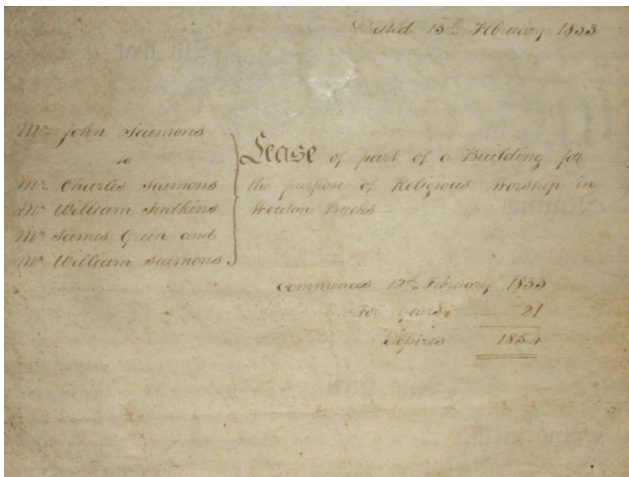 Dated 13th February 1833
Mr John Seamons
to
Mr Charles Seamons
Mr William Judkins
Mr James Green and
Mr William Seamons
Lease of part of a Building for
the purpose of Religious Worship in
Weedon Bucks
Commences 12th February 1833
For years 21
Expires 1854